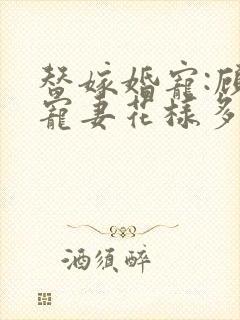 替嫁婚宠:顾
宠妻花样多
酒须醉